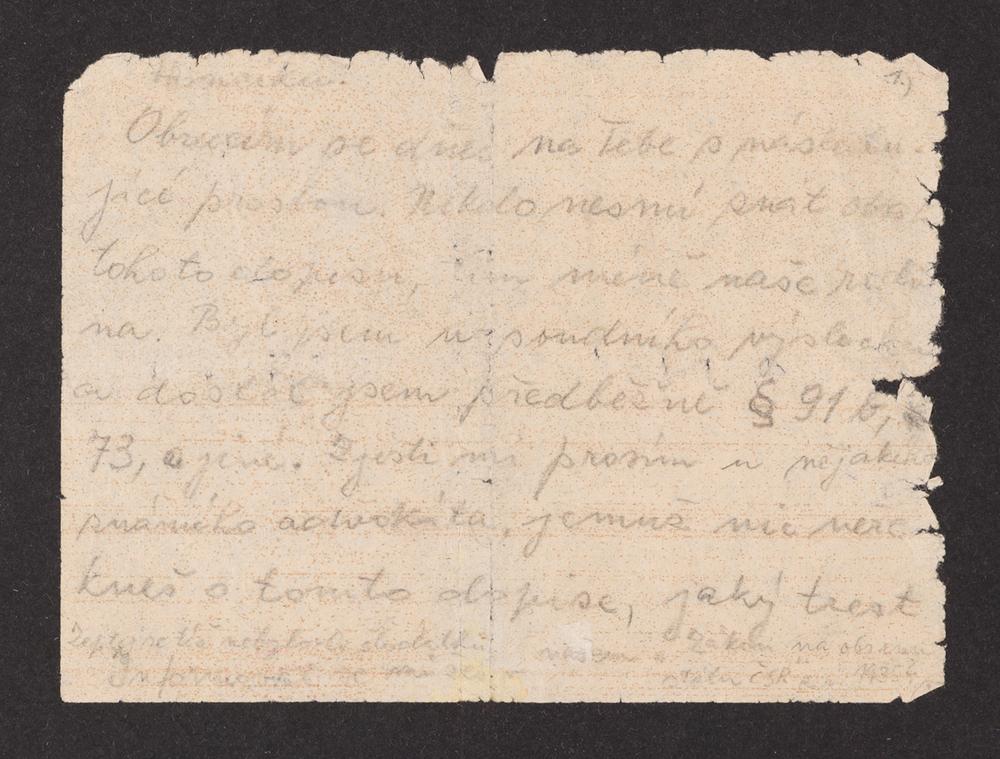 1.)
Obracím se dnes na Tebe s následu-
jící prosbou. Nikdo nesmí znát obsah
tohoto dopisu, tím méně naše rodi-
na. Byl jsem u soudního výslechu
a dostal jsem předběžně § 91 b,
73, a jiné. Zjisti mi prosím u nějakého
známého advokáta, jemuž nic neře-
kneš o tomto dopise, jaký trest
Zákon na obranu
Informovat se státu ČSR